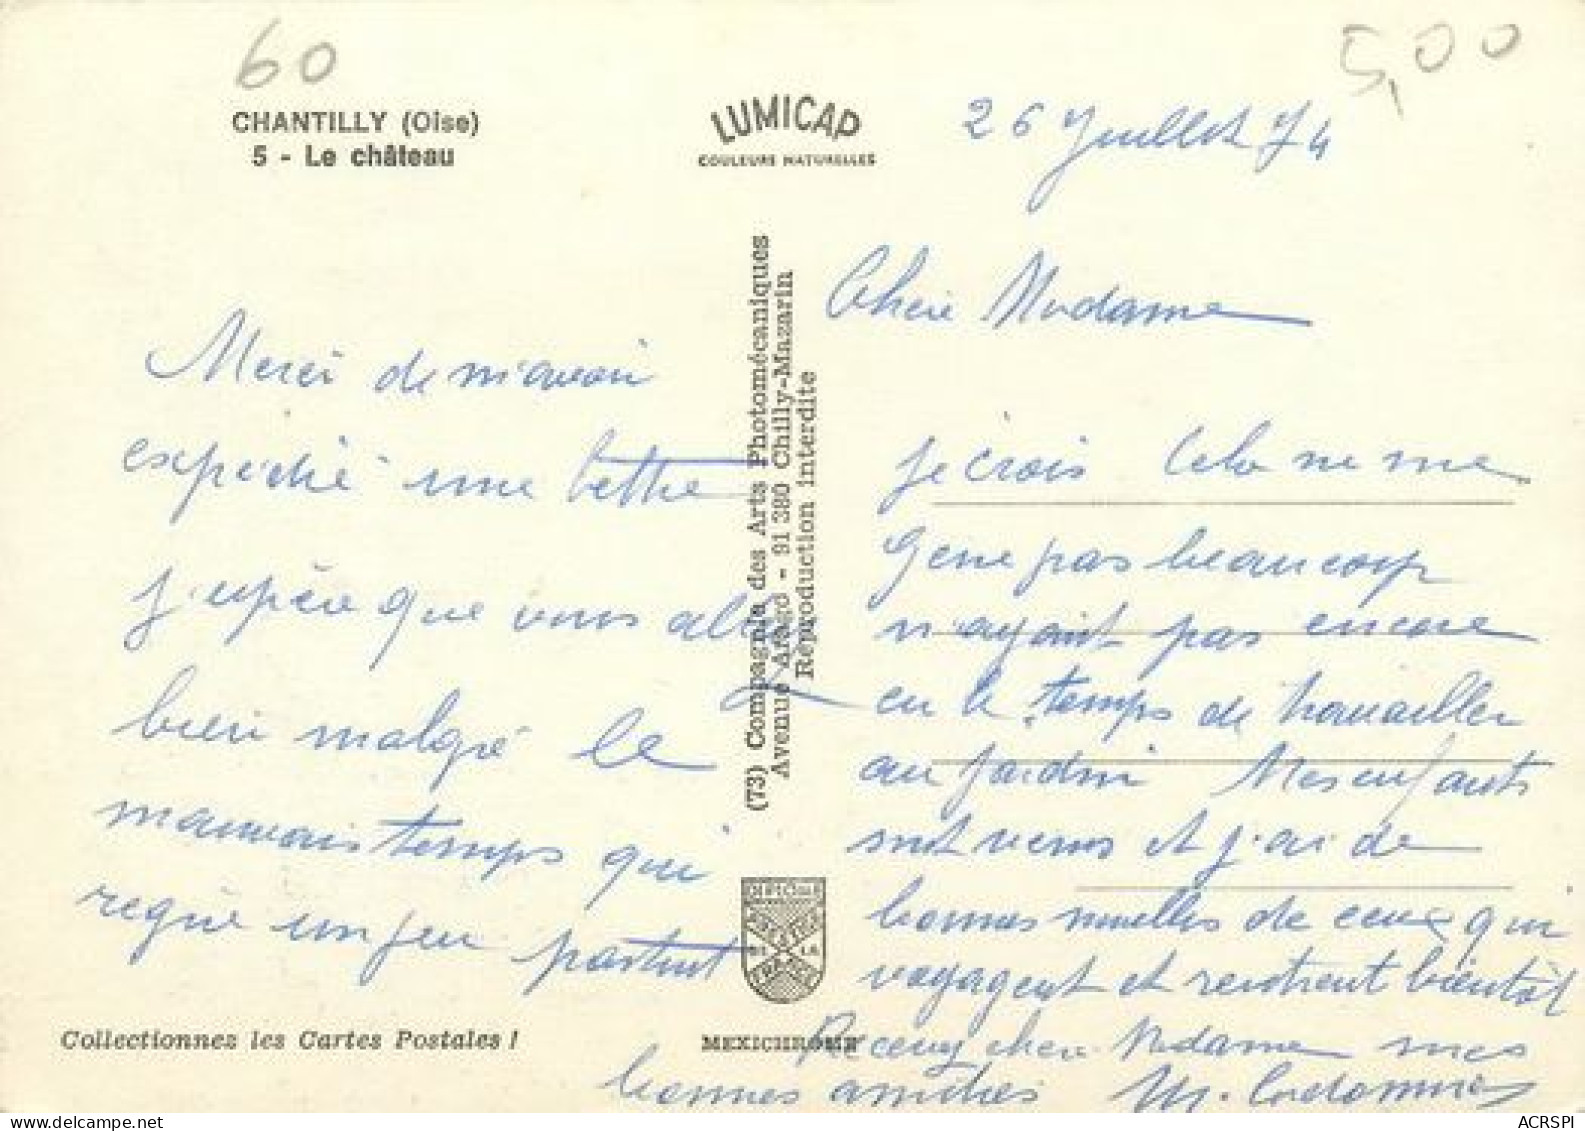 60
5,00
CHANTILLY (Oise)
5 - Le château
LUMICAP
COULEURS NATURELLES
26 Juillet 74
Chère Madame
Merci de m'avoir
expédié une lettre
j'espère que vous allez
bien malgré le
mauvais temps qui
règne un peu partout
je crois Cela ne me
gène pas beaucoup
n'ayant pas encore
eu le temps de travailler
au jardin Mes enfants
sont venus et j'ai de
bonnes nouvelles de ceux qui
voyagent et rentrent bientôt
Recevez chère Madame mes
bonnes amitiés M.
(73) Compagnie des Arts Photomécaniques
Avenue Arago - 91 380 Chilly-Mazarin
Reproduction interdite
Collectionnez les Cartes Postales !
MEXICHROME
ACRSPI